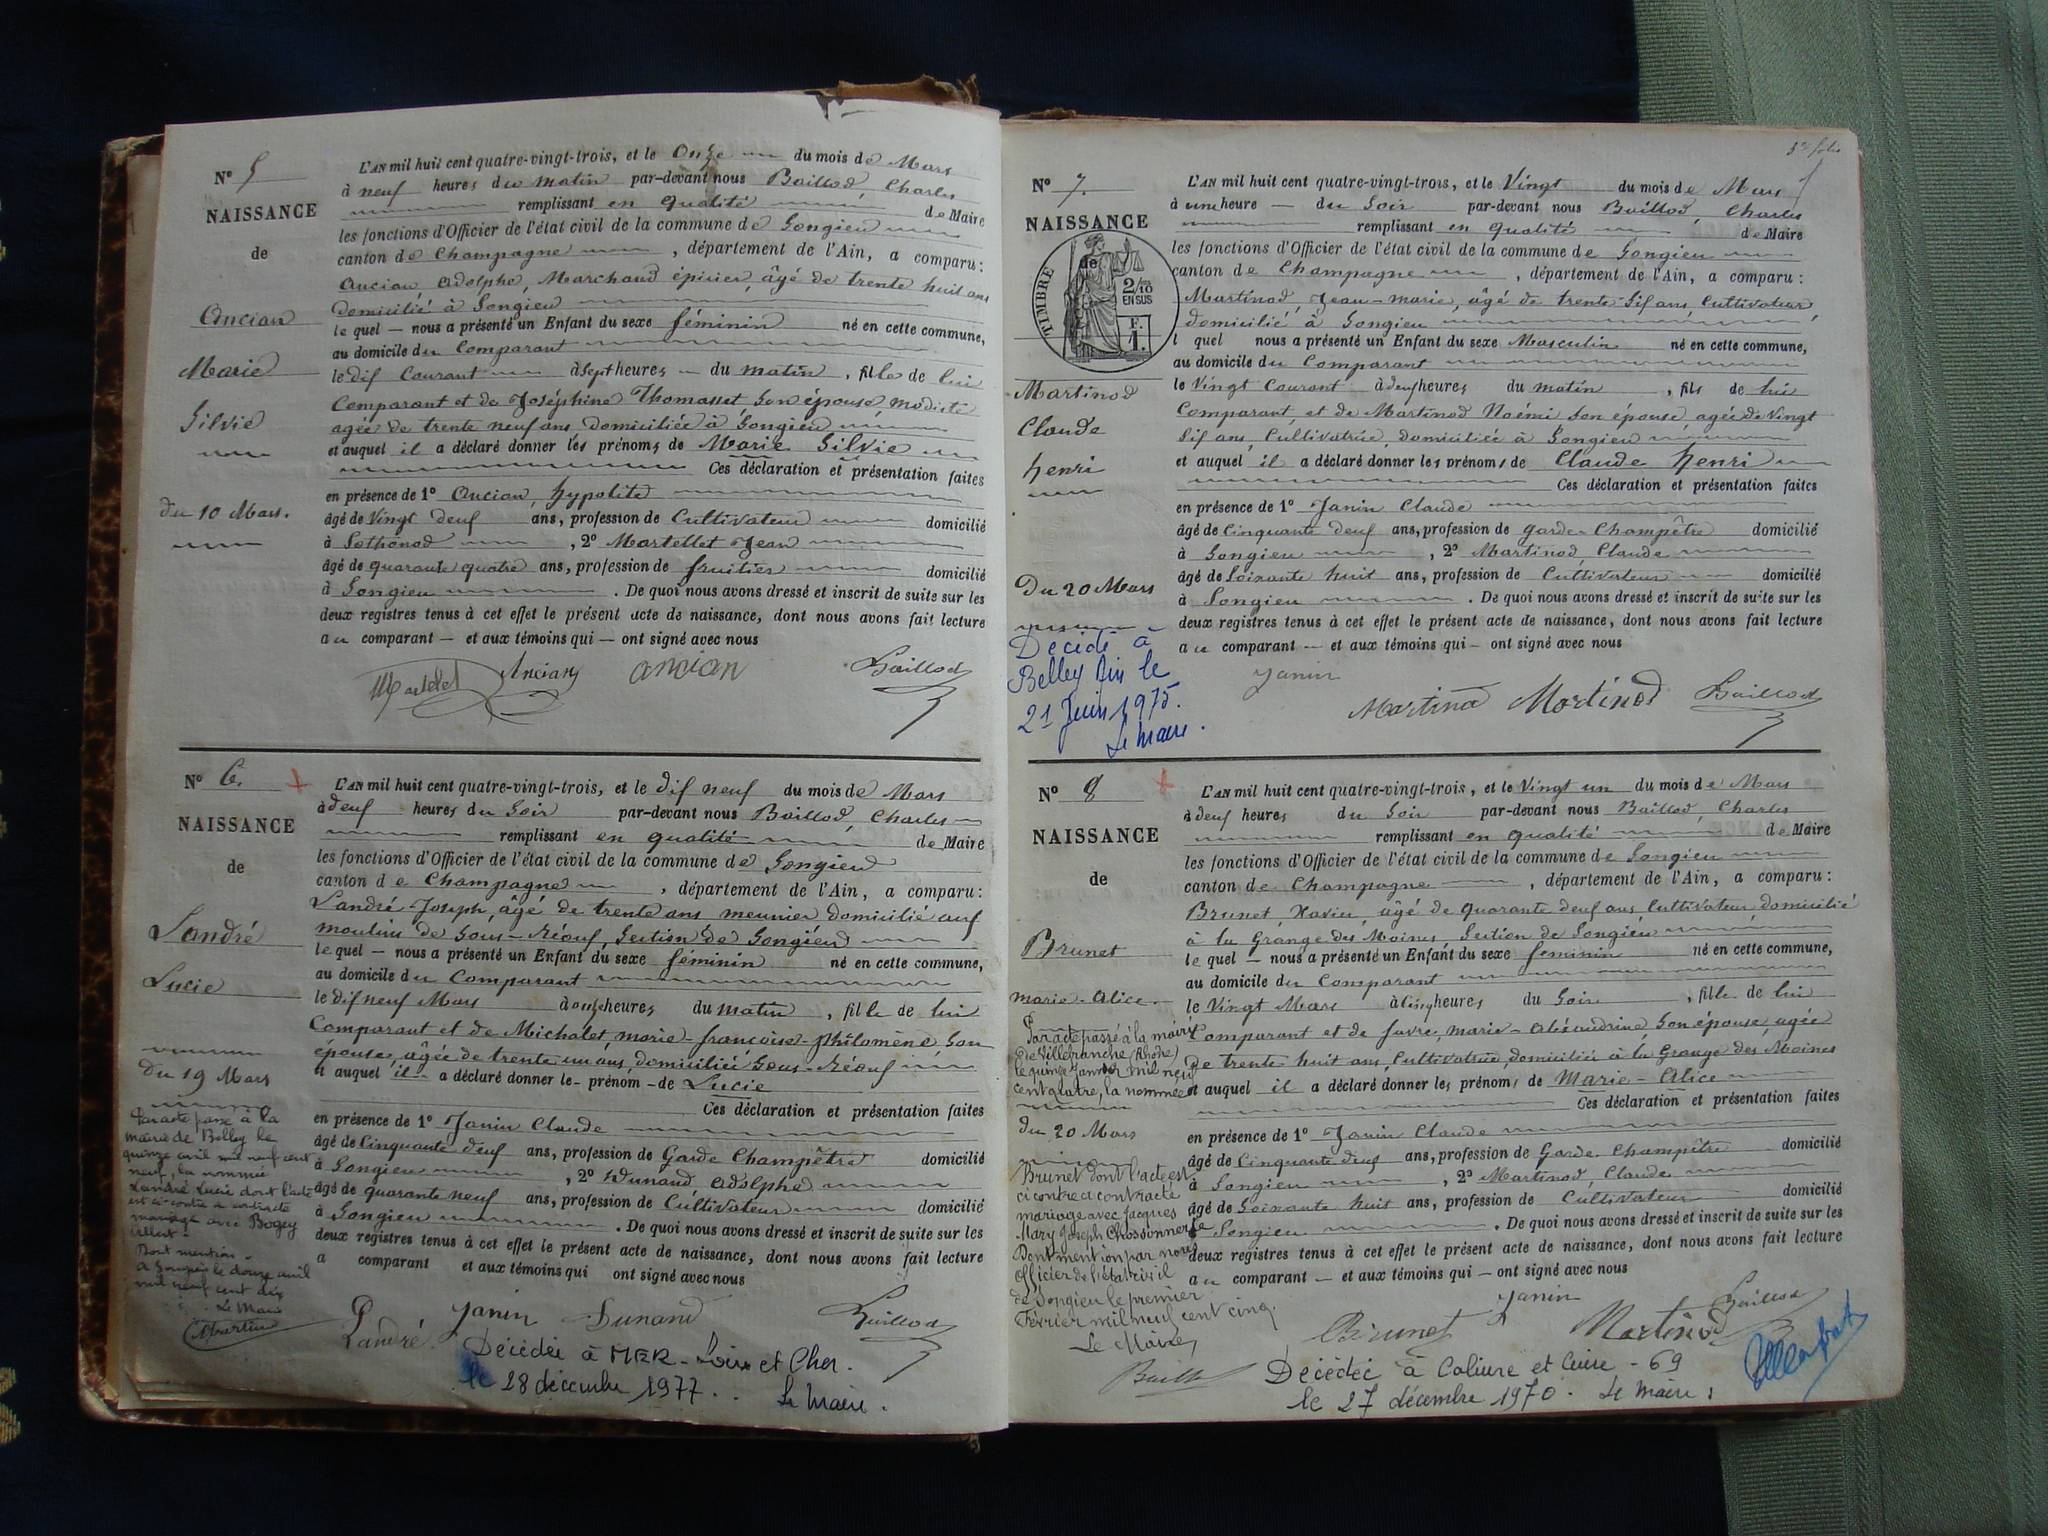 Nº 5
NAISSANCE
de
Ancian
Marie
Silvie
du 10 Mars.
L'AN mil huit cent quatre-vingt-trois, et le Onze du mois de Mars
à neuf heures du matin par-devant nous Baillod, Charles
remplissant en qualité de Maire
les fonctions d'Officier de l'état civil de la commune de Songieu
canton de Champagne , département de l'Ain, a comparu :
Ancian Adolphe, Marchand épicier, âgé de trente huit ans
domicilié à Songieu
le quel — nous a présenté un Enfant du sexe féminin né en cette commune,
au domicile du Comparant
le dix Courant à sept heures du matin , fille de lui
Comparant et de Joséphine Thomasset son épouse, modiste
agée de trente neuf ans domiciliée à Songieu
et auquel il a déclaré donner les prénoms de Marie Silvie
Ces déclaration et présentation faites
en présence de 1º Ancian, hypolite
âgé de Vingt neuf ans, profession de Cultivateur domicilié
à Sothonod , 2º Martellet Jean
âgé de quarante quatre ans, profession de fruitier domicilié
à Songieu . De quoi nous avons dressé et inscrit de suite sur les
deux registres tenus à cet effet le présent acte de naissance, dont nous avons fait lecture
au comparant — et aux témoins qui — ont signé avec nous
Martelet Ancian ancian Baillod
Nº 6.
NAISSANCE
de
Landré
Lucie
du 19 Mars
Par acte passé à la
mairie de Belley le
quinze avril mil neuf cent
neuf, la nommée
Landré Lucie dont l'acte
est ci-contre a contracté
mariage avec Bogey
Albert.
Dont mention.
A Songieu le douze avril
mil neuf cent dix
Le Maire
Martin
L'AN mil huit cent quatre-vingt-trois, et le dix neuf du mois de Mars
à deux heures du Soir par-devant nous Baillod, Charles
remplissant en qualité de Maire
les fonctions d'Officier de l'état civil de la commune de Songieu
canton de Champagne , département de l'Ain, a comparu :
Landré Joseph, âgé de trente ans meunier domicilié aux
moulins de Sous-Réouf, Section de Songieu
le quel — nous a présenté un Enfant du sexe féminin né en cette commune,
au domicile du Comparant
le dix neuf Mars à onze heures du matin , fille de lui
Comparant et de Michalet, marie-francoise-philomène, son
épouse, âgée de trente un ans, domiciliée Sous-Réouf
et auquel il a déclaré donner le prénom de Lucie
Ces déclaration et présentation faites
en présence de 1º Janin Claude
âgé de Cinquante deux ans, profession de Garde Champêtre domicilié
à Songieu , 2º Dunand Adolphe
âgé de quarante neuf ans, profession de Cultivateur domicilié
à Songieu . De quoi nous avons dressé et inscrit de suite sur les
deux registres tenus à cet effet le présent acte de naissance, dont nous avons fait lecture
a comparant et aux témoins qui ont signé avec nous
Landré Janin Dunand Baillod
Décédée à MER - Loir et Cher.
le 28 décembre 1977. Le Maire.
3e folio
Nº 7.
NAISSANCE
de
TIMBRE
2/10
EN SUS
F.
1.
Martinod
Claude
henri
Du 20 Mars
Décédé à
Belley Ain le
21 Juin 1975.
Le Maire.
L'AN mil huit cent quatre-vingt-trois, et le Vingt du mois de Mars
à une heure — du Soir par-devant nous Baillod, Charles
remplissant en qualité de Maire
les fonctions d'Officier de l'état civil de la commune de Songieu
canton de Champagne , département de l'Ain, a comparu :
Martinod, Jean-marie, âgé de trente Six ans, Cultivateur,
domicilié à Songieu
l quel nous a présenté un Enfant du sexe Masculin né en cette commune,
au domicile du Comparant
le Vingt Courant à deux heures du matin , fils de lui
Comparant, et de Martinod Noémi Son épouse, agée de Vingt
Six ans, Cultivatrice, domiciliée à Songieu
et auquel il a déclaré donner les prénoms de Claude henri
Ces déclaration et présentation faites
en présence de 1º Janin Claude
âgé de Cinquante deux ans, profession de garde Champêtre domicilié
à Songieu , 2º Martinod, Claude
âgé de Soixante huit ans, profession de Cultivateur domicilié
à Songieu . De quoi nous avons dressé et inscrit de suite sur les
deux registres tenus à cet effet le présent acte de naissance, dont nous avons fait lecture
au comparant — et aux témoins qui — ont signé avec nous
Janin
Martinod Martinod Baillod
Nº 8
NAISSANCE
de
Brunet
marie-Alice.
Par acte passé à la mairie
de Villefranche (Rhône)
le quinze Janvier mil neuf
cent quatre, la nommée
du 20 Mars
Brunet dont l'acte est
ci contre a contracté
mariage avec Jacques
Mary Joseph Chossonnerie
Dont mention par nous
officier de l'état civil
de Songieu le premier
Février mil neuf cent cinq.
Le Maire,
Baillod
L'AN mil huit cent quatre-vingt-trois, et le Vingt un du mois de Mars
à deux heures du Soir par-devant nous Baillod, Charles
remplissant en qualité de Maire
les fonctions d'Officier de l'état civil de la commune de Songieu
canton de Champagne , département de l'Ain, a comparu :
Brunet Xavier, âgé de quarante deux ans, Cultivateur, domicilié
à la Grange des Moines Section de Songieu
le quel — nous a présenté un Enfant du sexe féminin né en cette commune,
au domicile du Comparant
le Vingt Mars à Cinq heures du Soir , fille de lui
Comparant et de favre, marie-alexandrine, son épouse, agée
de trente huit ans, Cultivatrice, domiciliée à la Grange des Moines
et auquel il a déclaré donner les prénoms de Marie-Alice
Ces déclaration et présentation faites
en présence de 1º Janin Claude
âgé de Cinquante deux ans, profession de Garde Champêtre domicilié
à Songieu , 2º Martinod, Claude
âgé de Soixante huit ans, profession de Cultivateur domicilié
à Songieu . De quoi nous avons dressé et inscrit de suite sur les
deux registres tenus à cet effet le présent acte de naissance, dont nous avons fait lecture
au comparant — et aux témoins qui — ont signé avec nous
Janin
Brunet Martinod Baillod
Décédée à Caliure et Cuire - 69
le 27 décembre 1970. Le Maire :